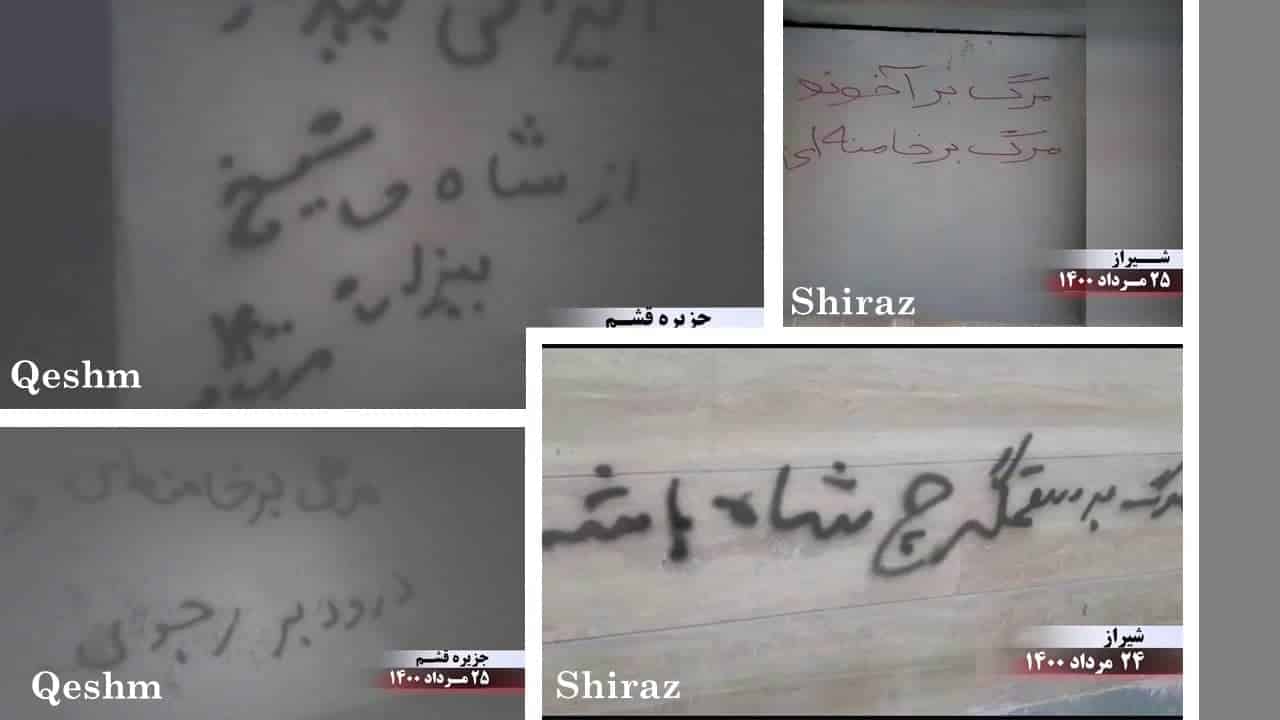 ایرانی بیدار
از شاه و شیخ
بیزار است
۱۴۰۰
مرداد
جزیره قشم
Qeshm
مرگ بر آخوند
مرگ بر خامنه‌ای
شیراز
۲۵ مرداد ۱۴۰۰
Shiraz
مرگ بر خامنه‌ای
درود بر رجوی
جزیره قشم
۲۵ مرداد ۱۴۰۰
Qeshm
مرگ بر ستمگر چ شاه باشه
شیراز
۲۴ مرداد ۱۴۰۰
Shiraz